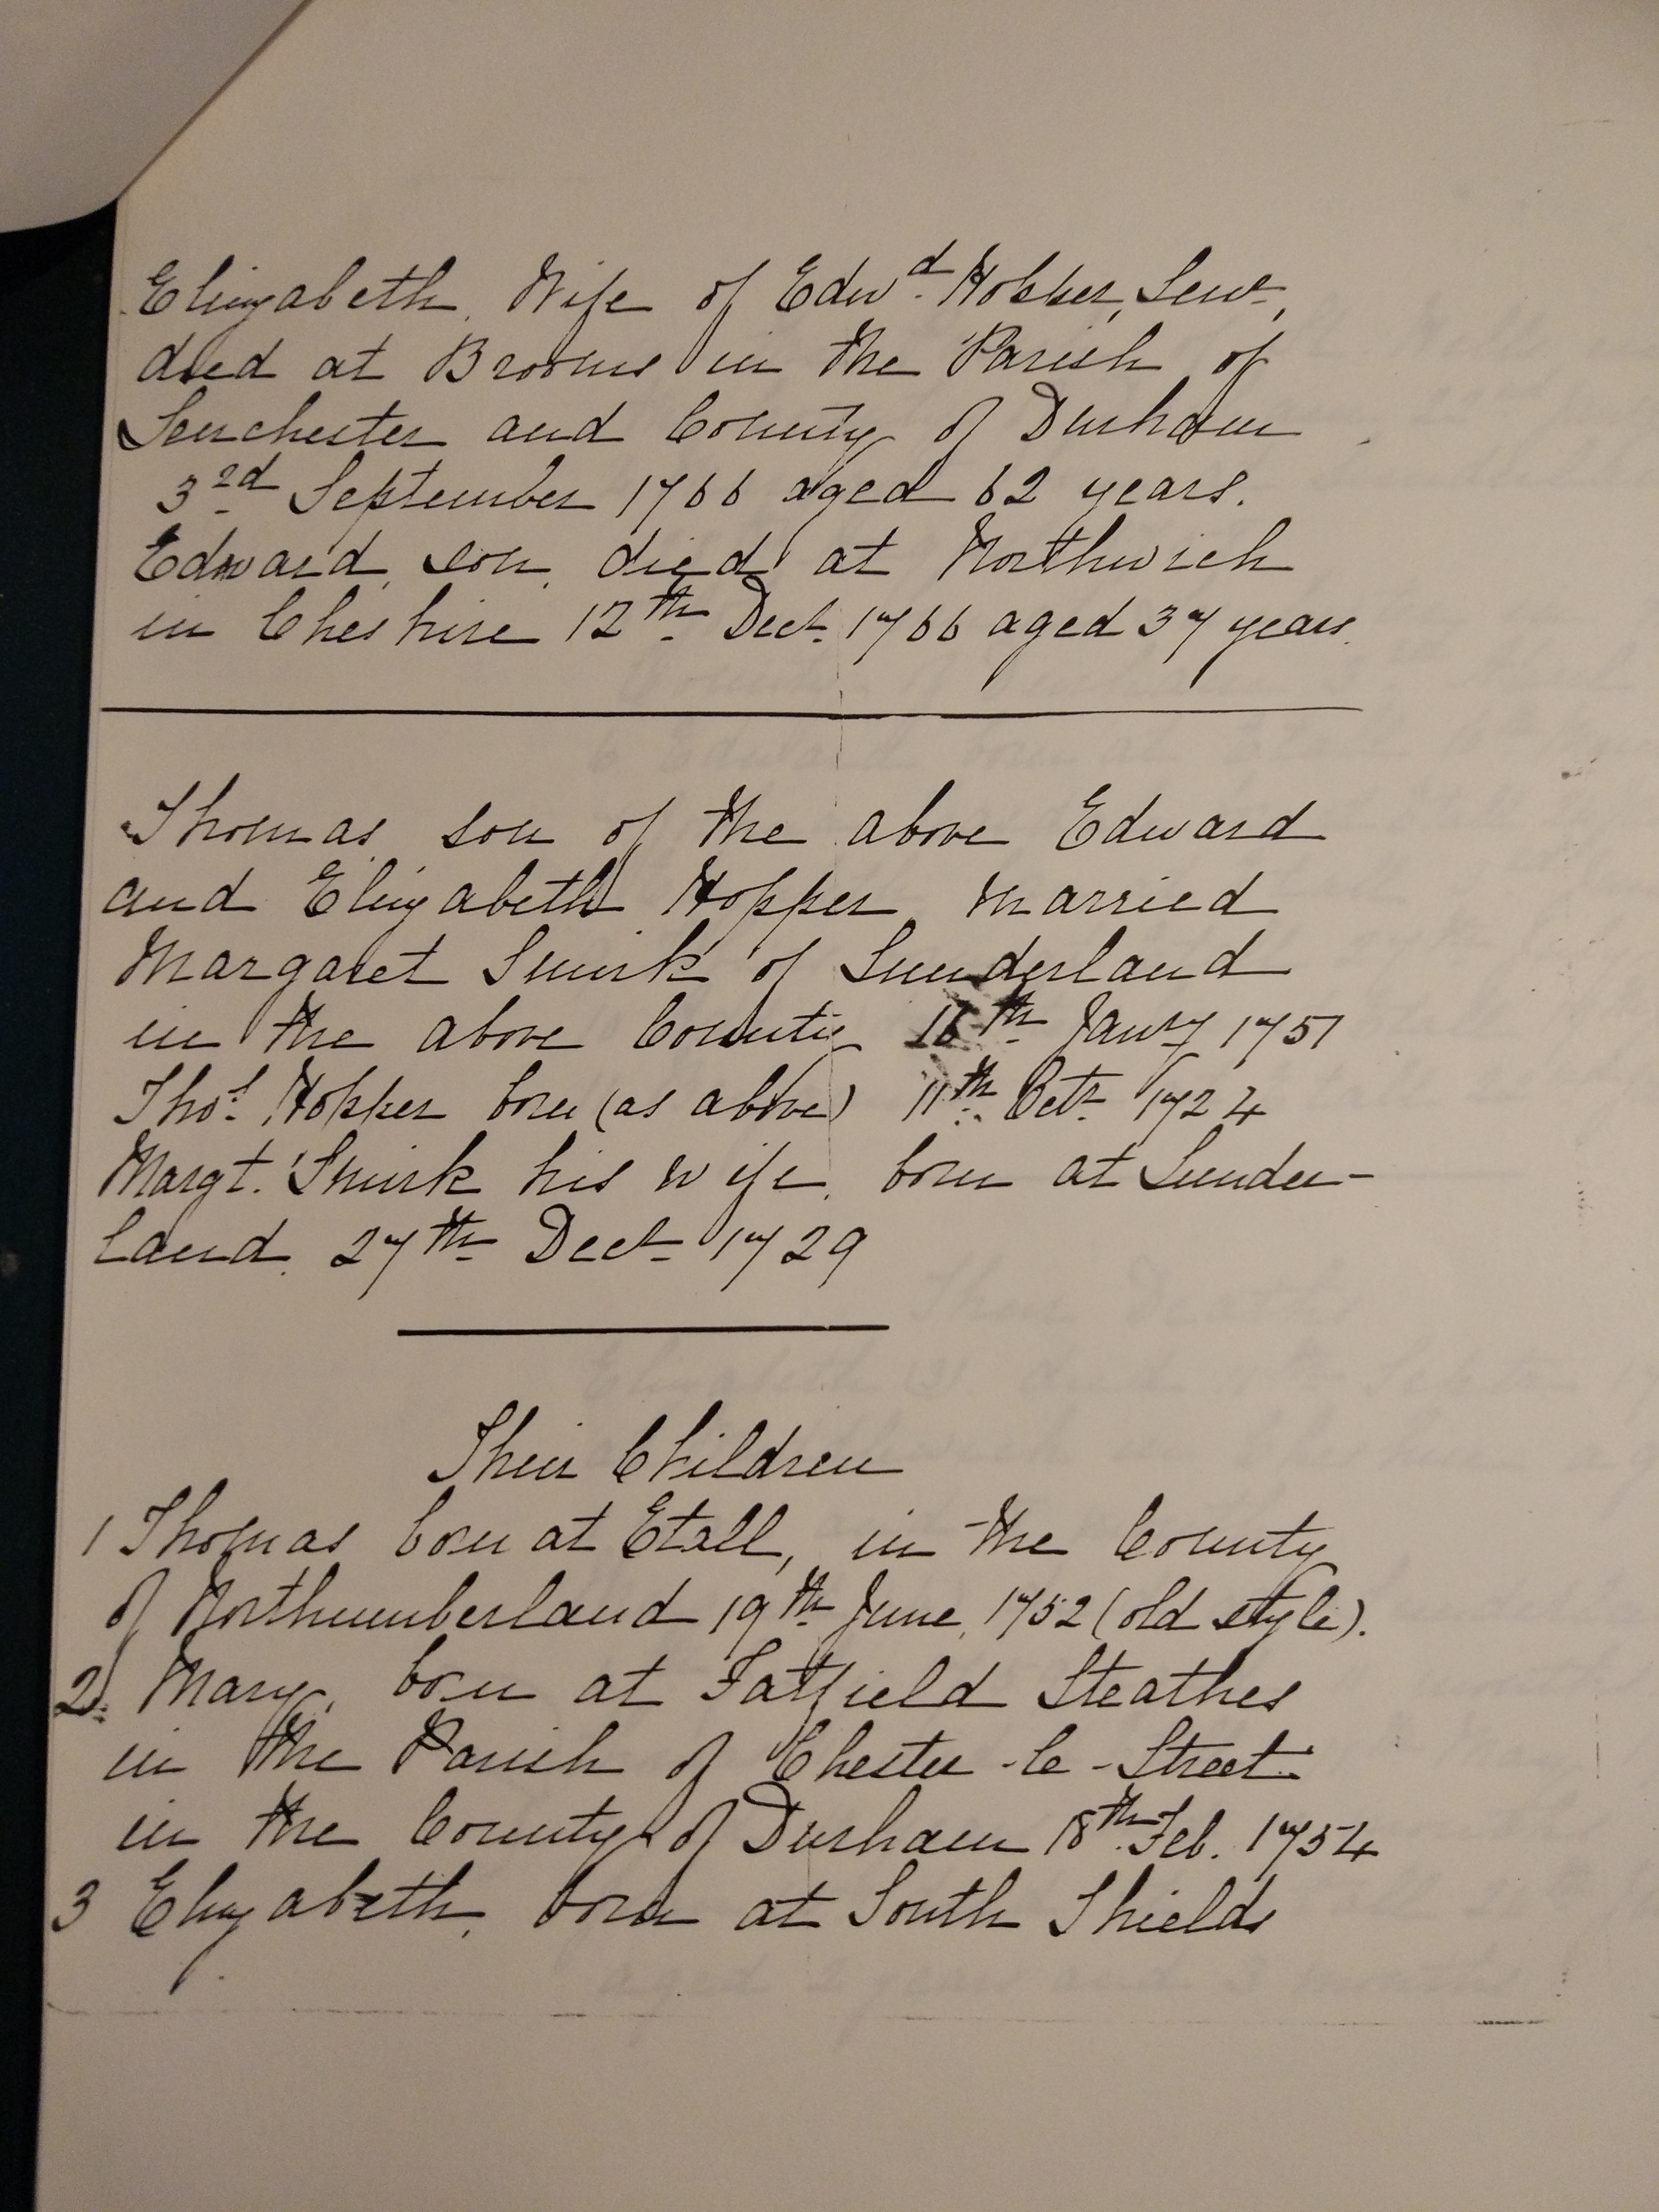 Elizabeth, Wife of Edwd. Hopper, Senr,
died at Brooms in the Parish of
Lenchester and County of Durham
3rd September 1766 aged 62 years.
Edward, son, died at Northwich
in Cheshire 12th Decr. 1766 aged 37 years.
Thomas son of the above Edward
and Elizabeth Hopper, married
Margaret Smirk of Sunderland
in the above County th Jany 1751
Thos. Hopper born (as above) 11th Octr 1724
Margt. Smirk his wife, born at Sunder-
land. 27th Decr 1729
Their Children
1 Thomas born at Etall, in the County
of Northumberland 19th June, 1752 (old style).
2. Mary, born at Fatfield Steathes
in the Parish of Chester-le-Street
in the County of Durham 18th Feb. 1754
3 Elizabeth, born at South Shields